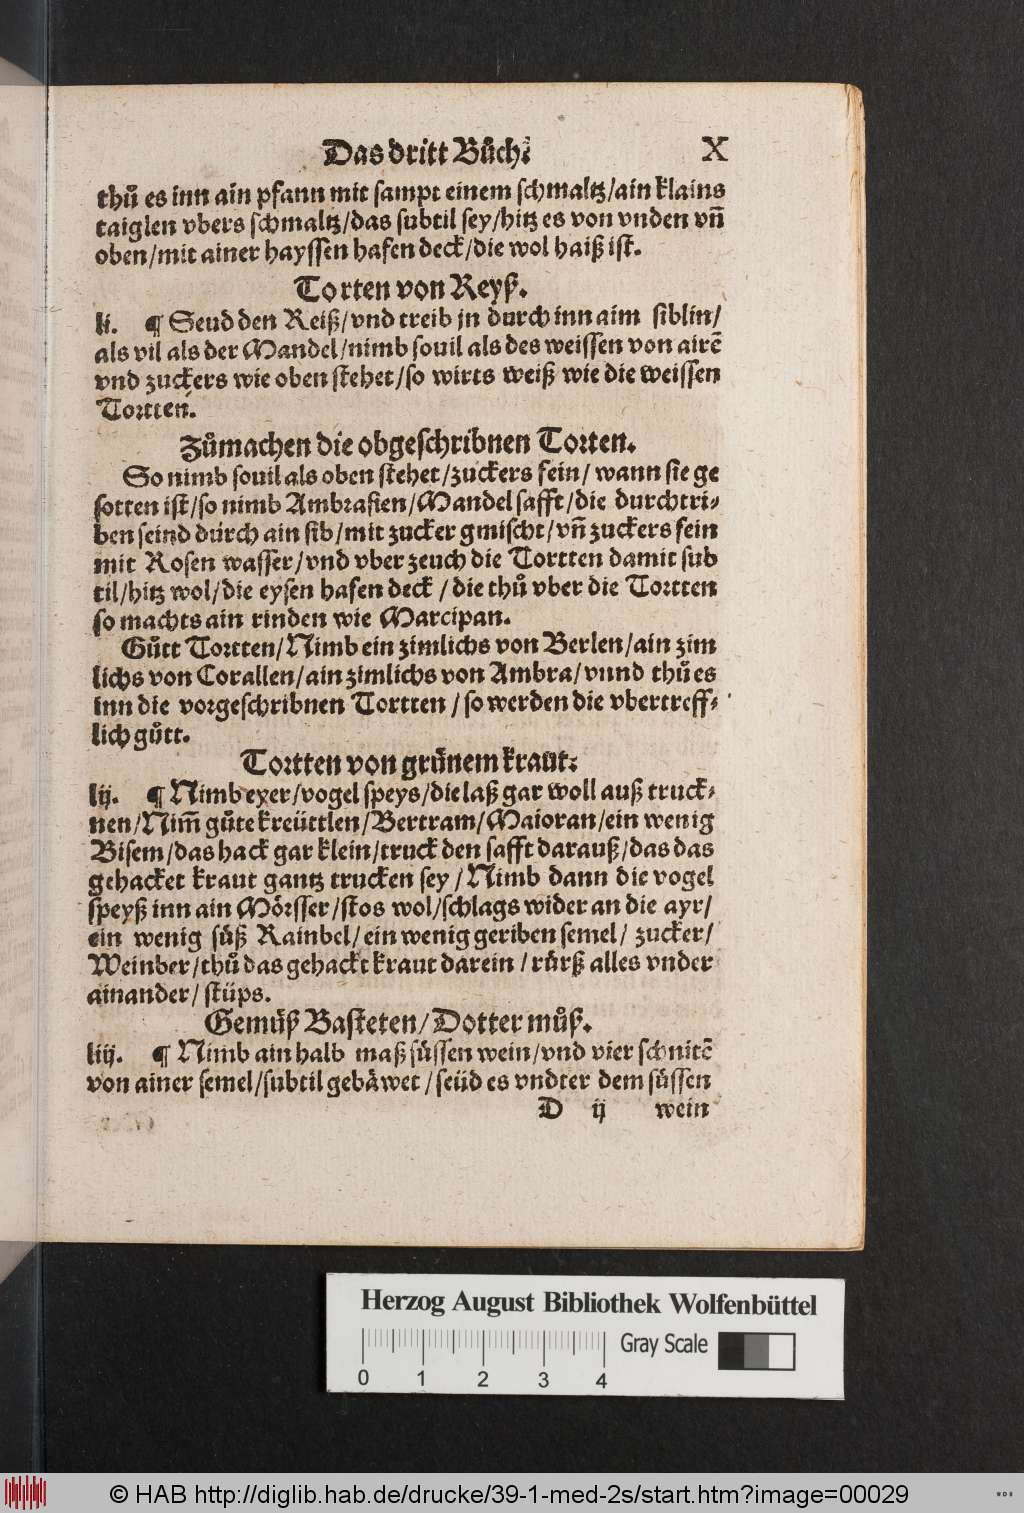 Das dritt Bůch. X
thů es inn ain pfann mit sampt einem schmaltz/ain klains
taiglen vbers schmaltz/das subtil sey/hitz es von vnden vñ
oben/mit ainer hayssen hafen deck/die wol haiß ist.
Torten von Reyß.
li. ¶ Seud den Reiß/vnd treib jn durch inn aim siblin/
als vil als der Mandel/nimb souil als des weissen von airẽ
vnd zuckers wie oben stehet/so wirts weiß wie die weissen
Tortten.
Zůmachen die obgeschribnen Torten.
So nimb souil als oben stehet/zuckers fein/ wann sie ge
sotten ist/so nimb Ambrasien/Mandel safft/die durchtri-
ben seind durch ain sib/mit zucker gmischt/vñ zuckers fein
mit Rosen wasser/vnd vber zeuch die Tortten damit sub
til/hitz wol/die eysen hafen deck / die thů vber die Tortten
so machts ain rinden wie Marcipan.
Gůtt Tortten/Nimb ein zimlichs von Berlen/ain zim
lichs von Corallen/ain zimlichs von Ambra/vnnd thů es
inn die vorgeschribnen Tortten / so werden die vbertreff-
lich gůtt.
Tortten von grůnem kraut.
lij. ¶ Nimb eyer/vogel speys/die laß gar woll auß truck-
nen/Nim̃ gůte kreüttlen/Bertram/Maioran/ein wenig
Bisem/das hack gar klein/truck den safft darauß/das das
gehacket kraut gantz trucken sey / Nimb dann die vogel
speyß inn ain Moͤrsser/stos wol/schlags wider an die ayr/
ein wenig sůß Rainbel/ein wenig geriben semel/ zucker/
Weinber/thů das gehackt kraut darein / růrß alles vnder
ainander/ stüps.
Gemůß Basteten/Dotter můß.
liij. ¶ Nimb ain halb maß sůssen wein/vnd vier schnitẽ
von ainer semel/subtil gebaͤwet / seüd es vndter dem sůssen
D ij wein
Herzog August Bibliothek Wolfenbüttel
Gray Scale
0 1 2 3 4
© HAB http://diglib.hab.de/drucke/39-1-med-2s/start.htm?image=00029